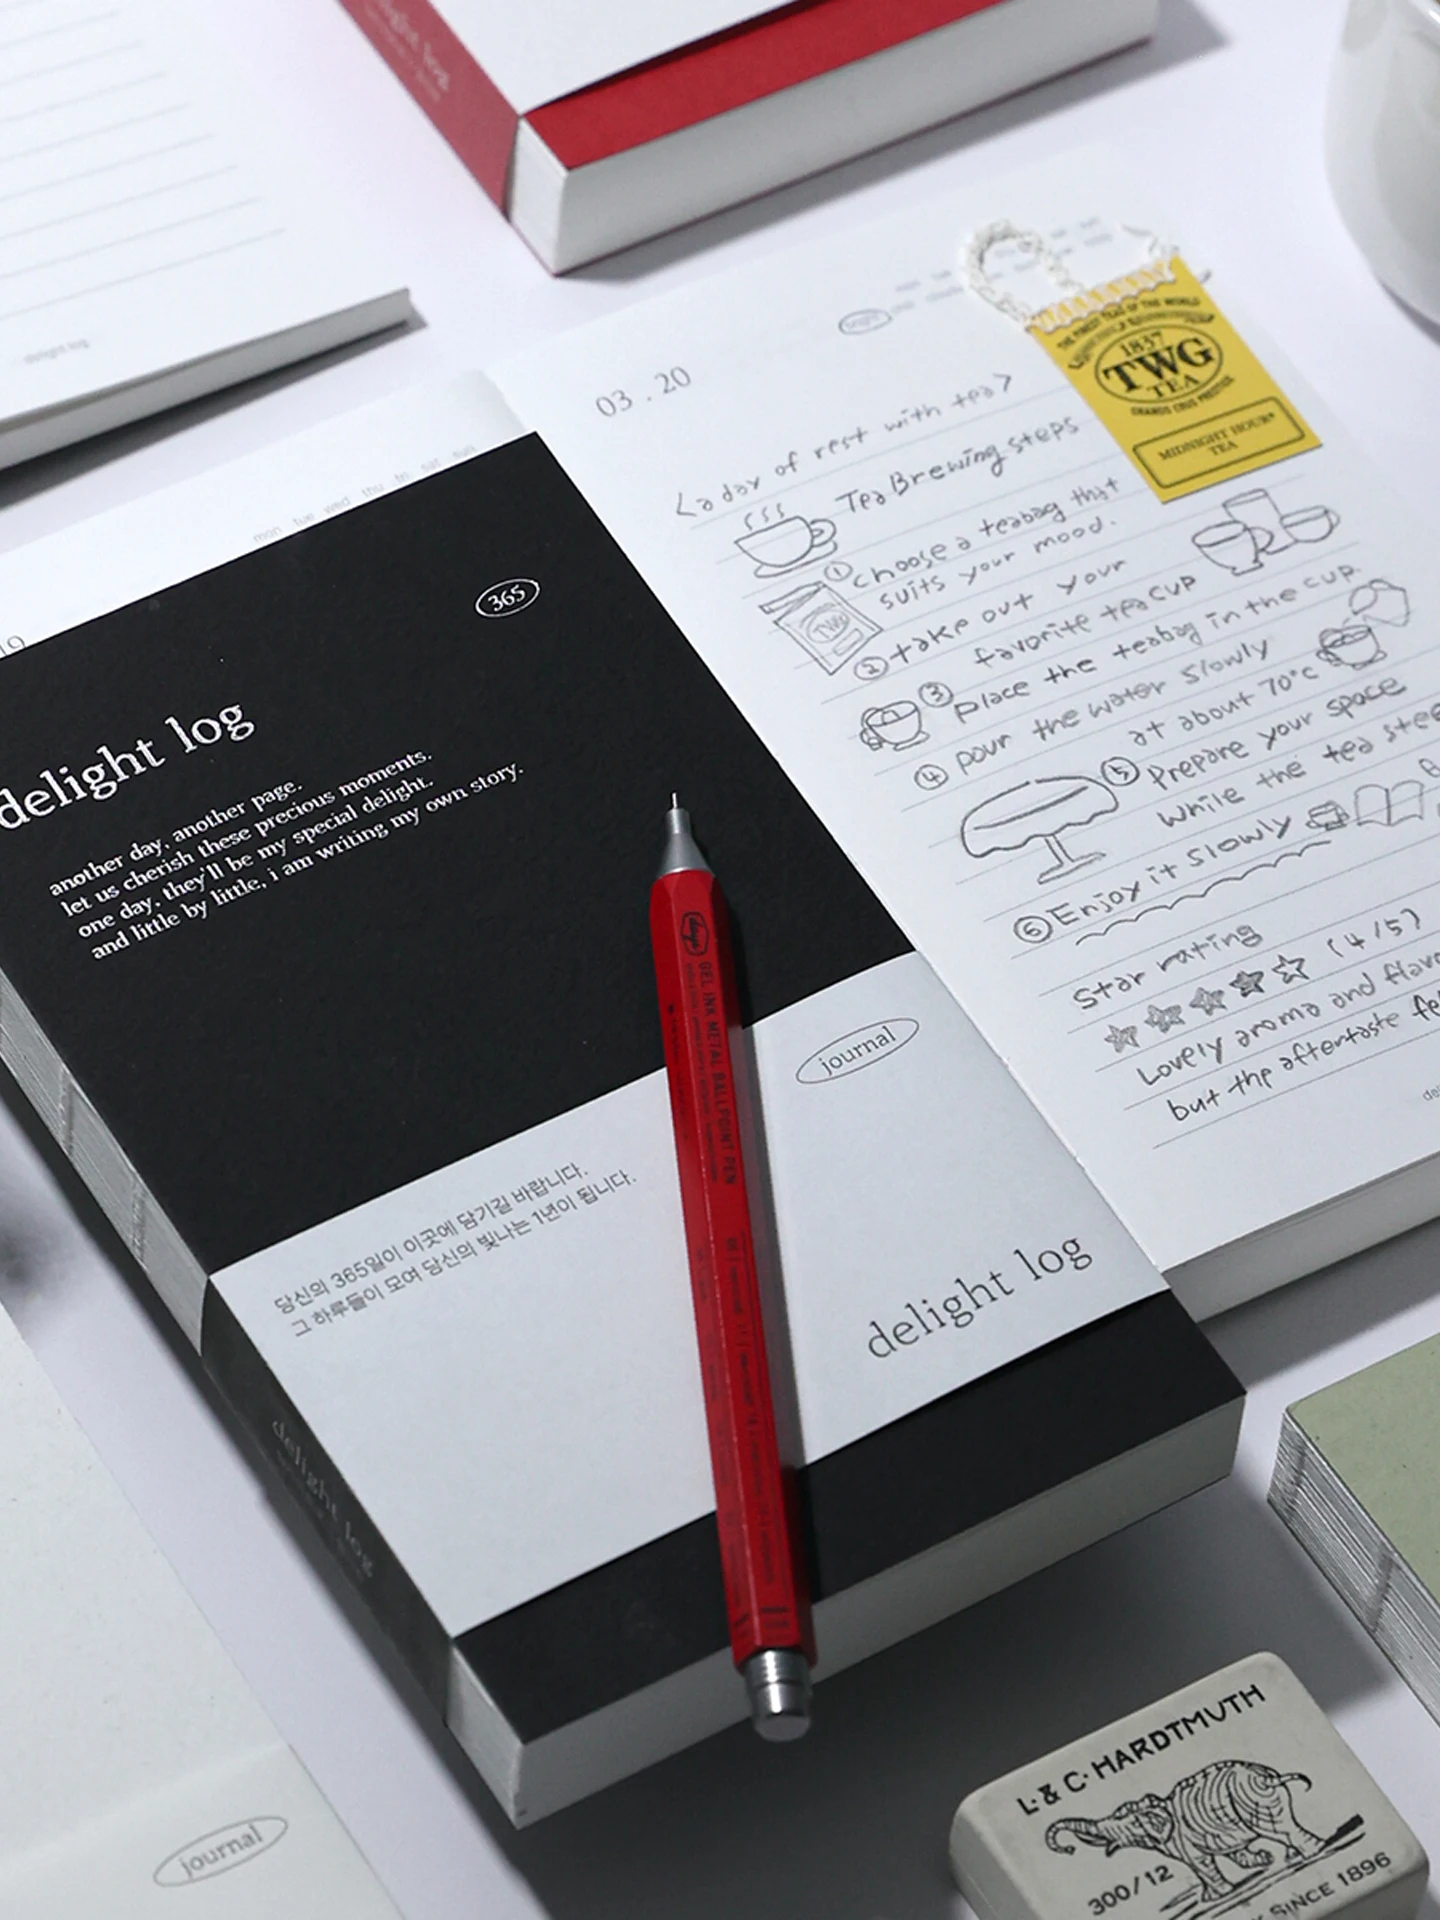 light log
delight log
03 . 20
THE FINEST TEAS OF THE WORLD
1837
TWG
TEA
GRANDS CRUS PRESTIGE
MIDNIGHT HOUR
TEA
<a day of rest with tea>
Tea Brewing steps
① choose a teabag that
suits your mood.
TWG
② take out your
favorite tea cup
③ place the teabag in the cup.
④ pour the water slowly
at about 70°c
⑤ Prepare your space
while the tea stee
⑥ Enjoy it slowly
Star rating
(4/5)
Lovely aroma and flavo
but the aftertaste fe
mon tue wed thu fri sat sun
19
365
delight log
another day, another page.
let us cherish these precious moments.
one day, they'll be my special delight.
and little by little, i am writing my own story.
days
GEL INK METAL BALLPOINT PEN
journal
당신의 365일이 이곳에 담기길 바랍니다.
그 하루들이 모여 당신의 빛나는 1년이 됩니다.
delight log
delight log
journal
L. & C. HARDTMUTH
300/12
SINCE 1896